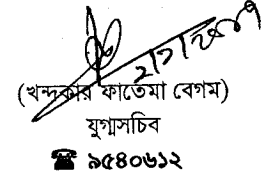 (খন্দকার ফাতেমা বেগম)
যুগ্মসচিব
☎ ৯৫৪০৬১২